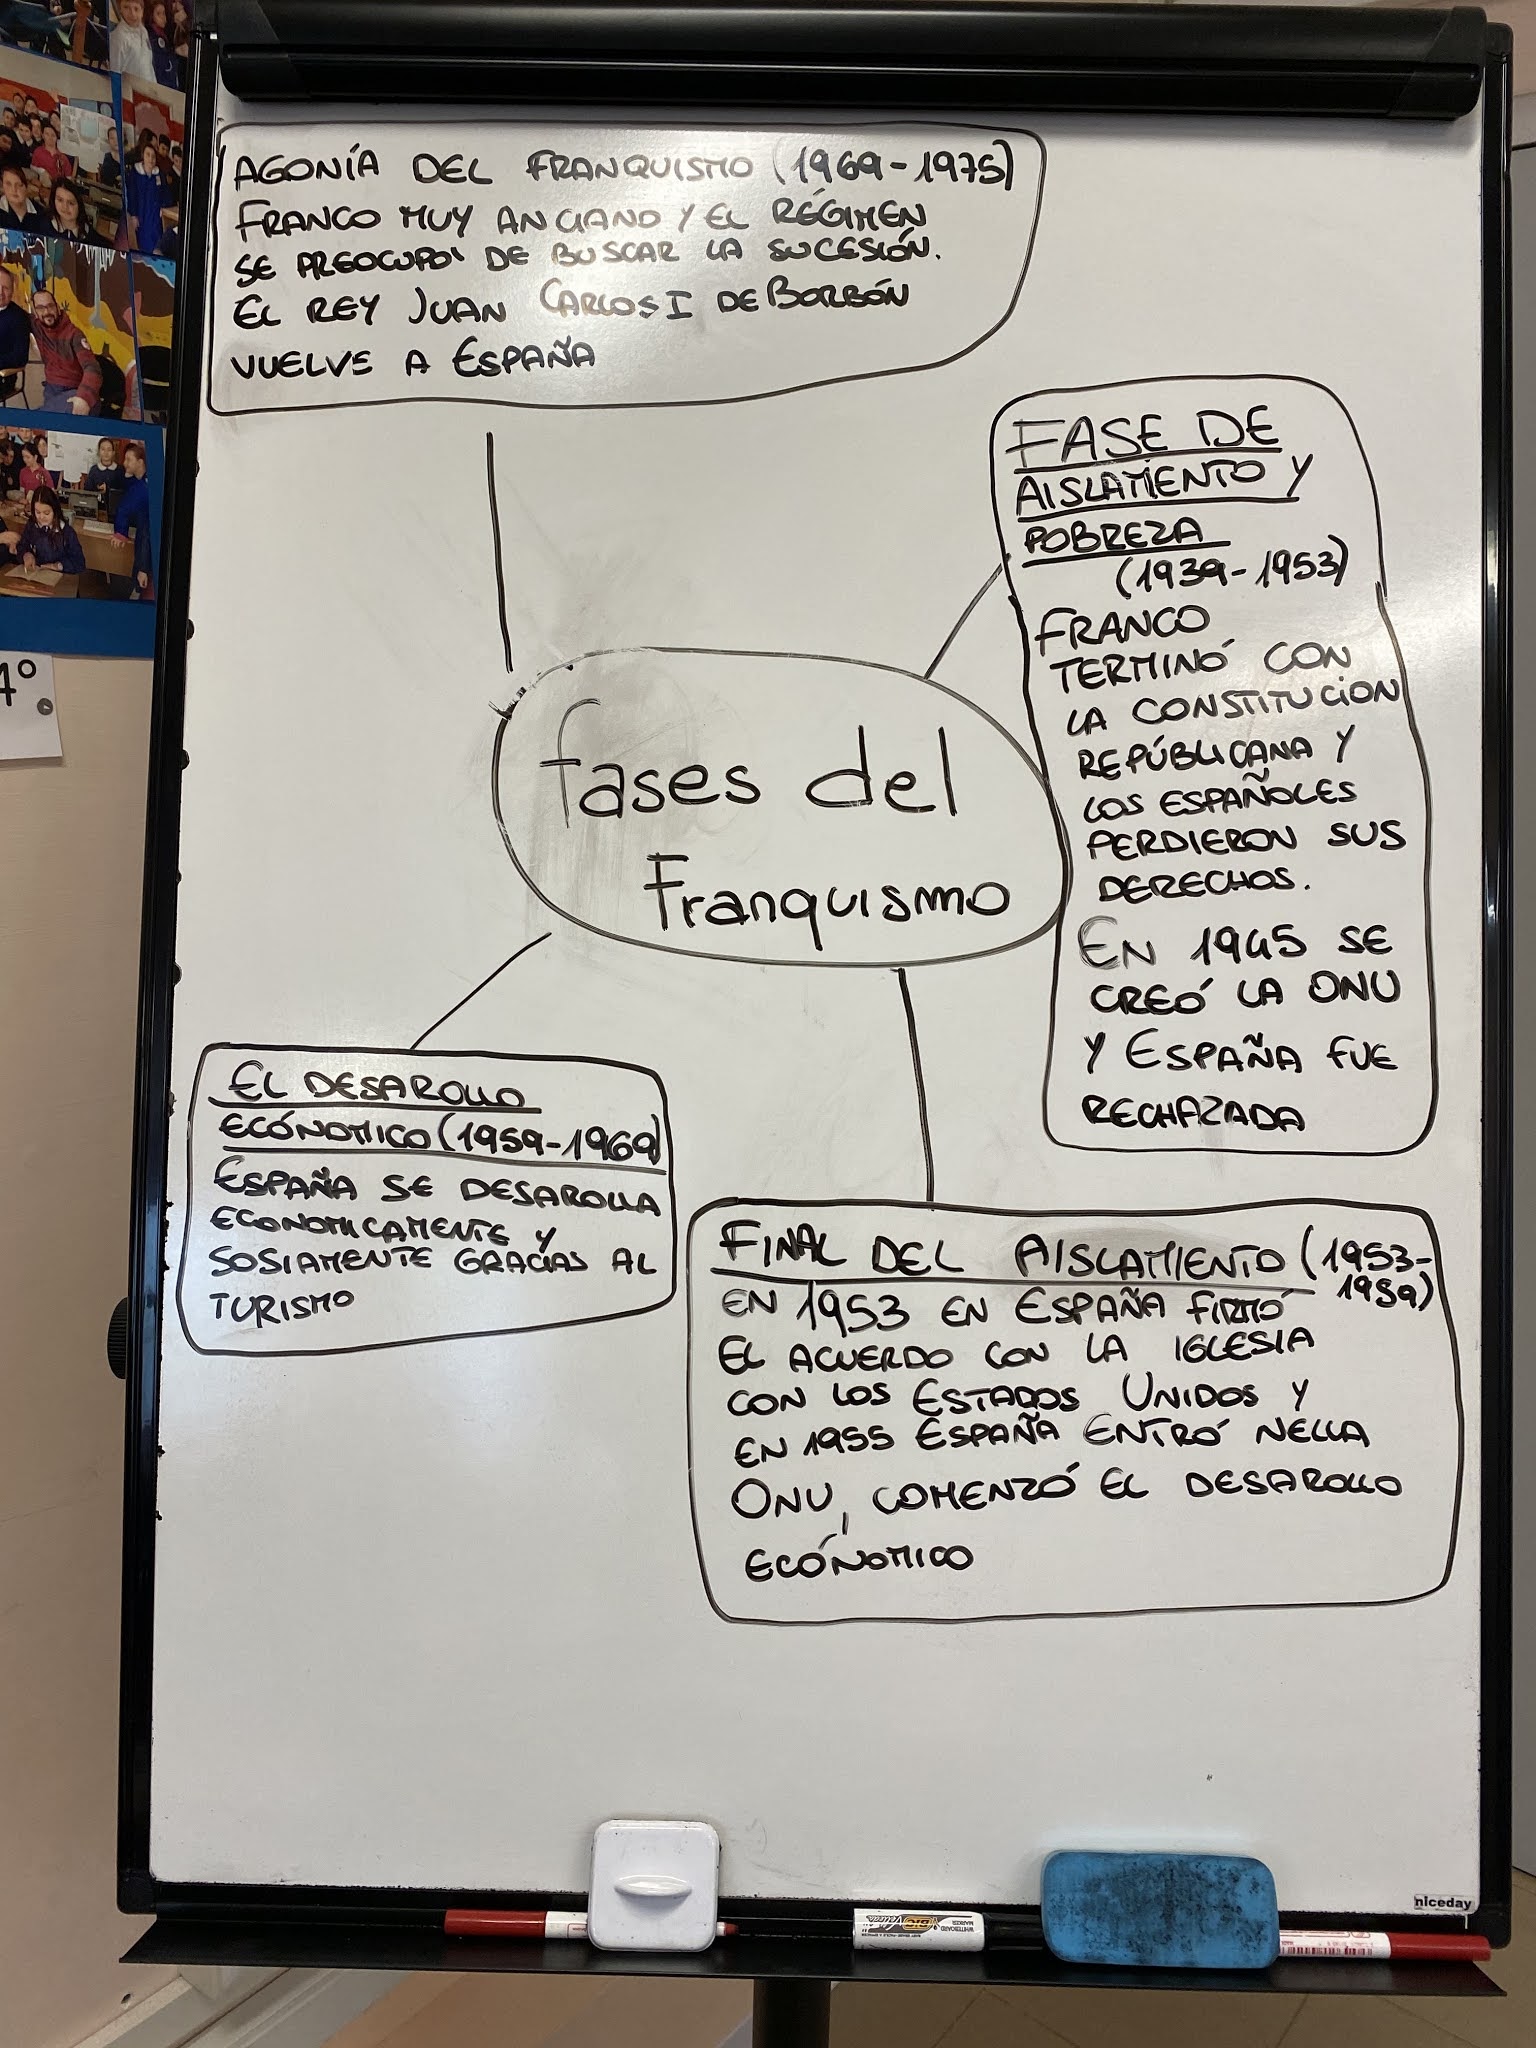 AGONÍA DEL FRANQUISMO (1969-1975)
FRANCO MUY ANCIANO Y EL RÉGIMEN
SE PREOCUPÓ DE BUSCAR LA SUCESIÓN.
EL REY JUAN CARLOS I DE BORBÓN
VUELVE A ESPAÑA
FASE DE
AISLAMIENTO Y
POBREZA
(1939-1953)
FRANCO
TERMINÓ CON
LA CONSTITUCION
REPÚBLICANA Y
LOS ESPAÑOLES
PERDIERON SUS
DERECHOS.
EN 1945 SE
CREÓ LA ONU
Y ESPAÑA FUE
RECHAZADA
fases del
Franquismo
EL DESAROLLO
ECÓNOMICO (1959-1969)
ESPAÑA SE DESAROLLA
ECONOMICAMENTE Y
SOSIAMENTE GRACIAS AL
TURISMO
FINAL DEL AISLAMIENTO (1953-
1959)
EN 1953 EN ESPAÑA FIRMÓ
EL ACUERDO CON LA IGLESIA
CON LOS ESTADOS UNIDOS Y
EN 1955 ESPAÑA ENTRÓ NELLA
ONU, COMENZÓ EL DESAROLLO
ECÓNOMICO
niceday
WHITEBOARD
MARKER
BIC
Velleda